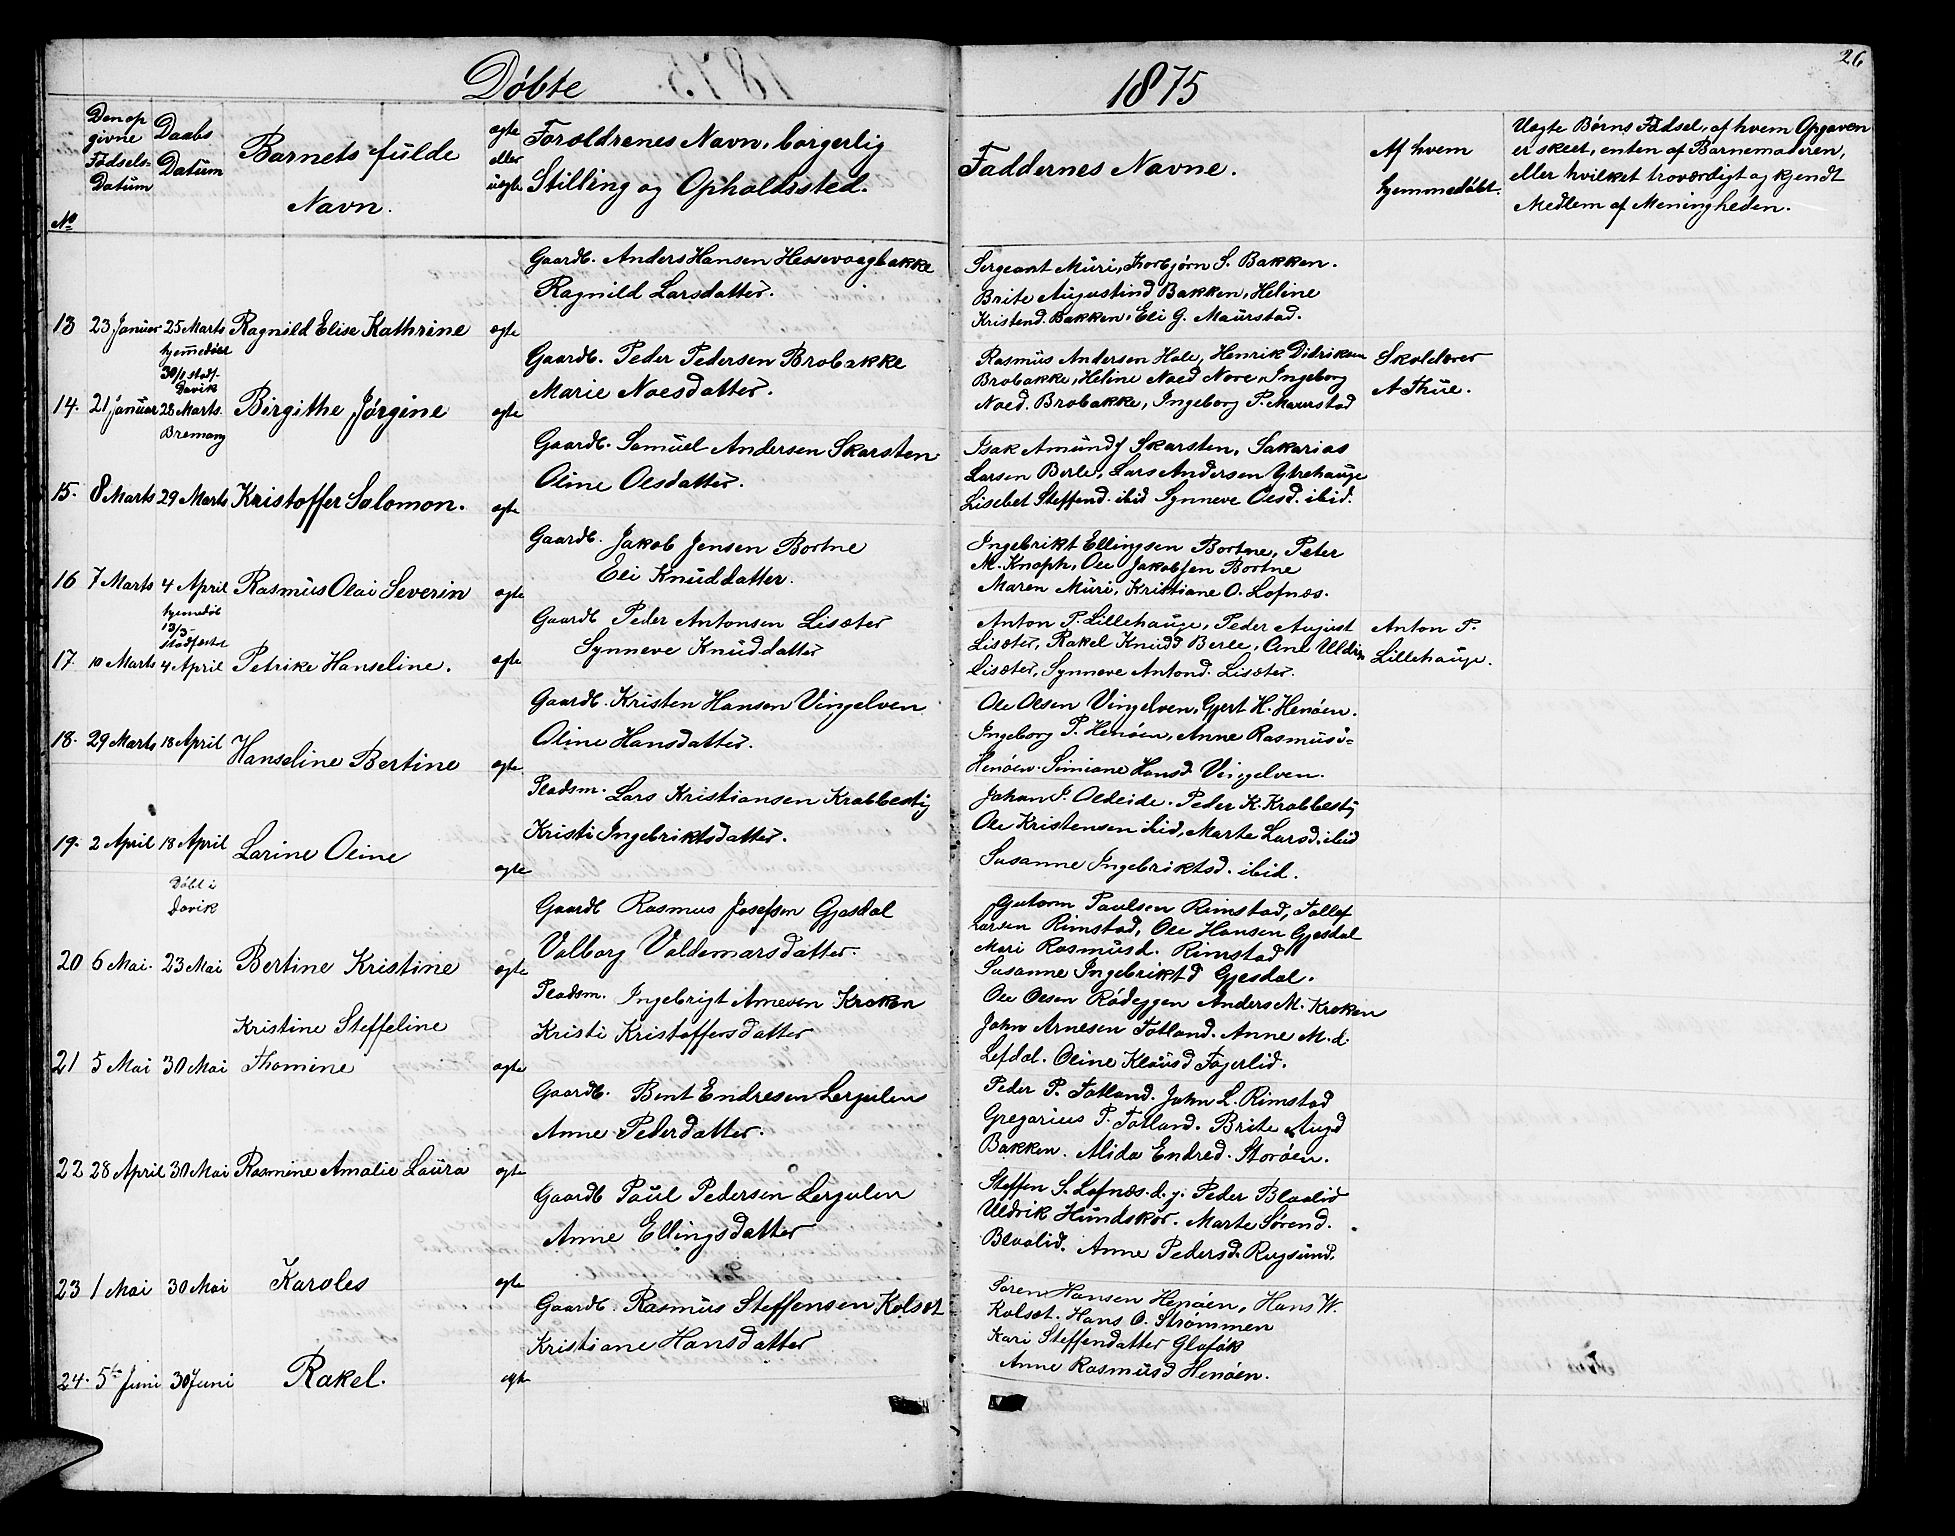 Döbte 1875 26
Den opgivne Fødsels-Datum
Daabs Datum
Barnets fulde Navn.
ægte eller uægte
Forældrenes Navn, borgerlig Stilling og Opholdssted.
Faddernes Navne.
Af hvem hjemmedøbt.
Uægte Børns Fødsel, af hvem Opgaven
er skeet, enten af Barnemoderen,
eller hvilket troværdigt og kjendt
Medlem af Meningheden.
No
Gaardb. Anders Hansen Hessevaagbakke
Ragnild Larsdatter.
13 23 Januar 25 Marts Ragnild Elise Kathrine ægte
Sergeant Müri, Thorbjørn S. Bakken.
Brite Augustind Bakken, Heline
Kristend. Bakken, Eli G. Maurstad.
hjemmedöbt
30/1 stadf.
Davik
Gaardb. Peder Pedersen Brobakke
Marie Noesdatter.
14. 21 Januar 28 Marts. Birgithe Jørgine ægte
Rasmus Andersen Hole, Henrik Didriksen
Brobakke, Heline Noed Nore, Ingeborg
Noed. Brobakke, Ingeborg P. Maurstad
Skolelærer
A Thue.
Bremang
Gaardb. Samuel Andersen Skarsten
Oline Olsdatter.
15. 8 Marts 29 Marts Kristoffer Salomon. ægte
Isak Amundss Skarsten, Sakarias
Larsen Berle, Lars Andersen Ytrehauge
Lisebet Steffend. ibid Synneve Olsd. ibid.
Gaardb. Jakob Jensen Bortne
Eli Knuddatter.
16 7 Marts 4 April Rasmus Olai Severin ægte
Ingebrikt Ellingsen Bortne, Peter
M. Knoph, Ole Jakobsen Bortne
Maren Müri, Kristiane O. Lofnæs.
hjemmedöb
13/3
stadfestet
Gaardb Peder Antonsen Lisæter
Synneve Knuddatter
17. 10 Marts 4 April Petrike Hanseline. ægte
Anton P. Lillehauge, Peder August
Lisæter, Rakel Knudd Berle, Ane
Lisæter, Synneve Antond. Lisæter.
Anton P.
Lillehauge.
Gaardb. Kristen Hansen Vingelven
Oline Hansdatter.
18. 29 Marts 18 April Hanseline Bertine ægte
Ole Olsen Vingelven, Gjert H. Henøen.
Ingeborg P. Henøen, Anne Rasmusd-
Henøen. Simiane Hansd Vingelven.
Pladsm. Lars Kristiansen Krabbestig
Kristi Ingebriktsdatter.
19. 2 April 18 April Larine Oline ægte
Johan J. Oldeide. Peder K. Krabbestig
Ole Kristensen ibid, Marte Larsd. ibid
Susanne Ingebriktsd. ibid.
Döbt i
Davik
Gaardb Rasmus Josefsen Gjesdal
Valborg Valdemarsdatter.
20 6 Mai. 23 Mai Bertine Kristine ægte
Gutorm Paulsen Rimstad, Tollef
Larsen Rimstad, Ole Hansen Gjesdal
Mari Rasmusd. Rimstad
Susanne Ingebriktd Gjesdal.
Pladsm. Ingebrigt Arnesen Kroken
Kristi Kristoffersdatter
Kristine Steffeline
21 5 Mai 30 Mai Thomine ægte
Ole Olsen Rödeggen Anders M. Kroken
John Arnesen Totland. Anne M. d.
Lefdal. Oline Klausd Fagerlid.
Gaardb. Bent Endresen Lergulen
Anne Pederdatter.
22 28 April 30 Mai Rasmine Amalie Laura ægte
Peder P. Totland. John L. Rimstad
Gregarius P. Totland. Brite Augd
Bakken. Alida Endred. Storøen.
Gaardb Paul Pedersen Lergulen
Anne Ellingsdatter
23 1 Mai 30 Mai Karoles ægte
Steffen S. Lofnæs. d. y. Peder Blaalid
Uldrik Hundskor. Marte Sørend.
Blaalid. Anne Pedersd. Rugsund.
Gaardb. Rasmus Steffensen Kolset
Kristiane Hansdatter
24. 5te Juni 30 Juni Rakel. ægte
Søren Hansen Henøen, Hans W.
Kolset. Hans O. Strømmen
Kari Steffendatter Glofok
Anne Rasmusd Henøen.